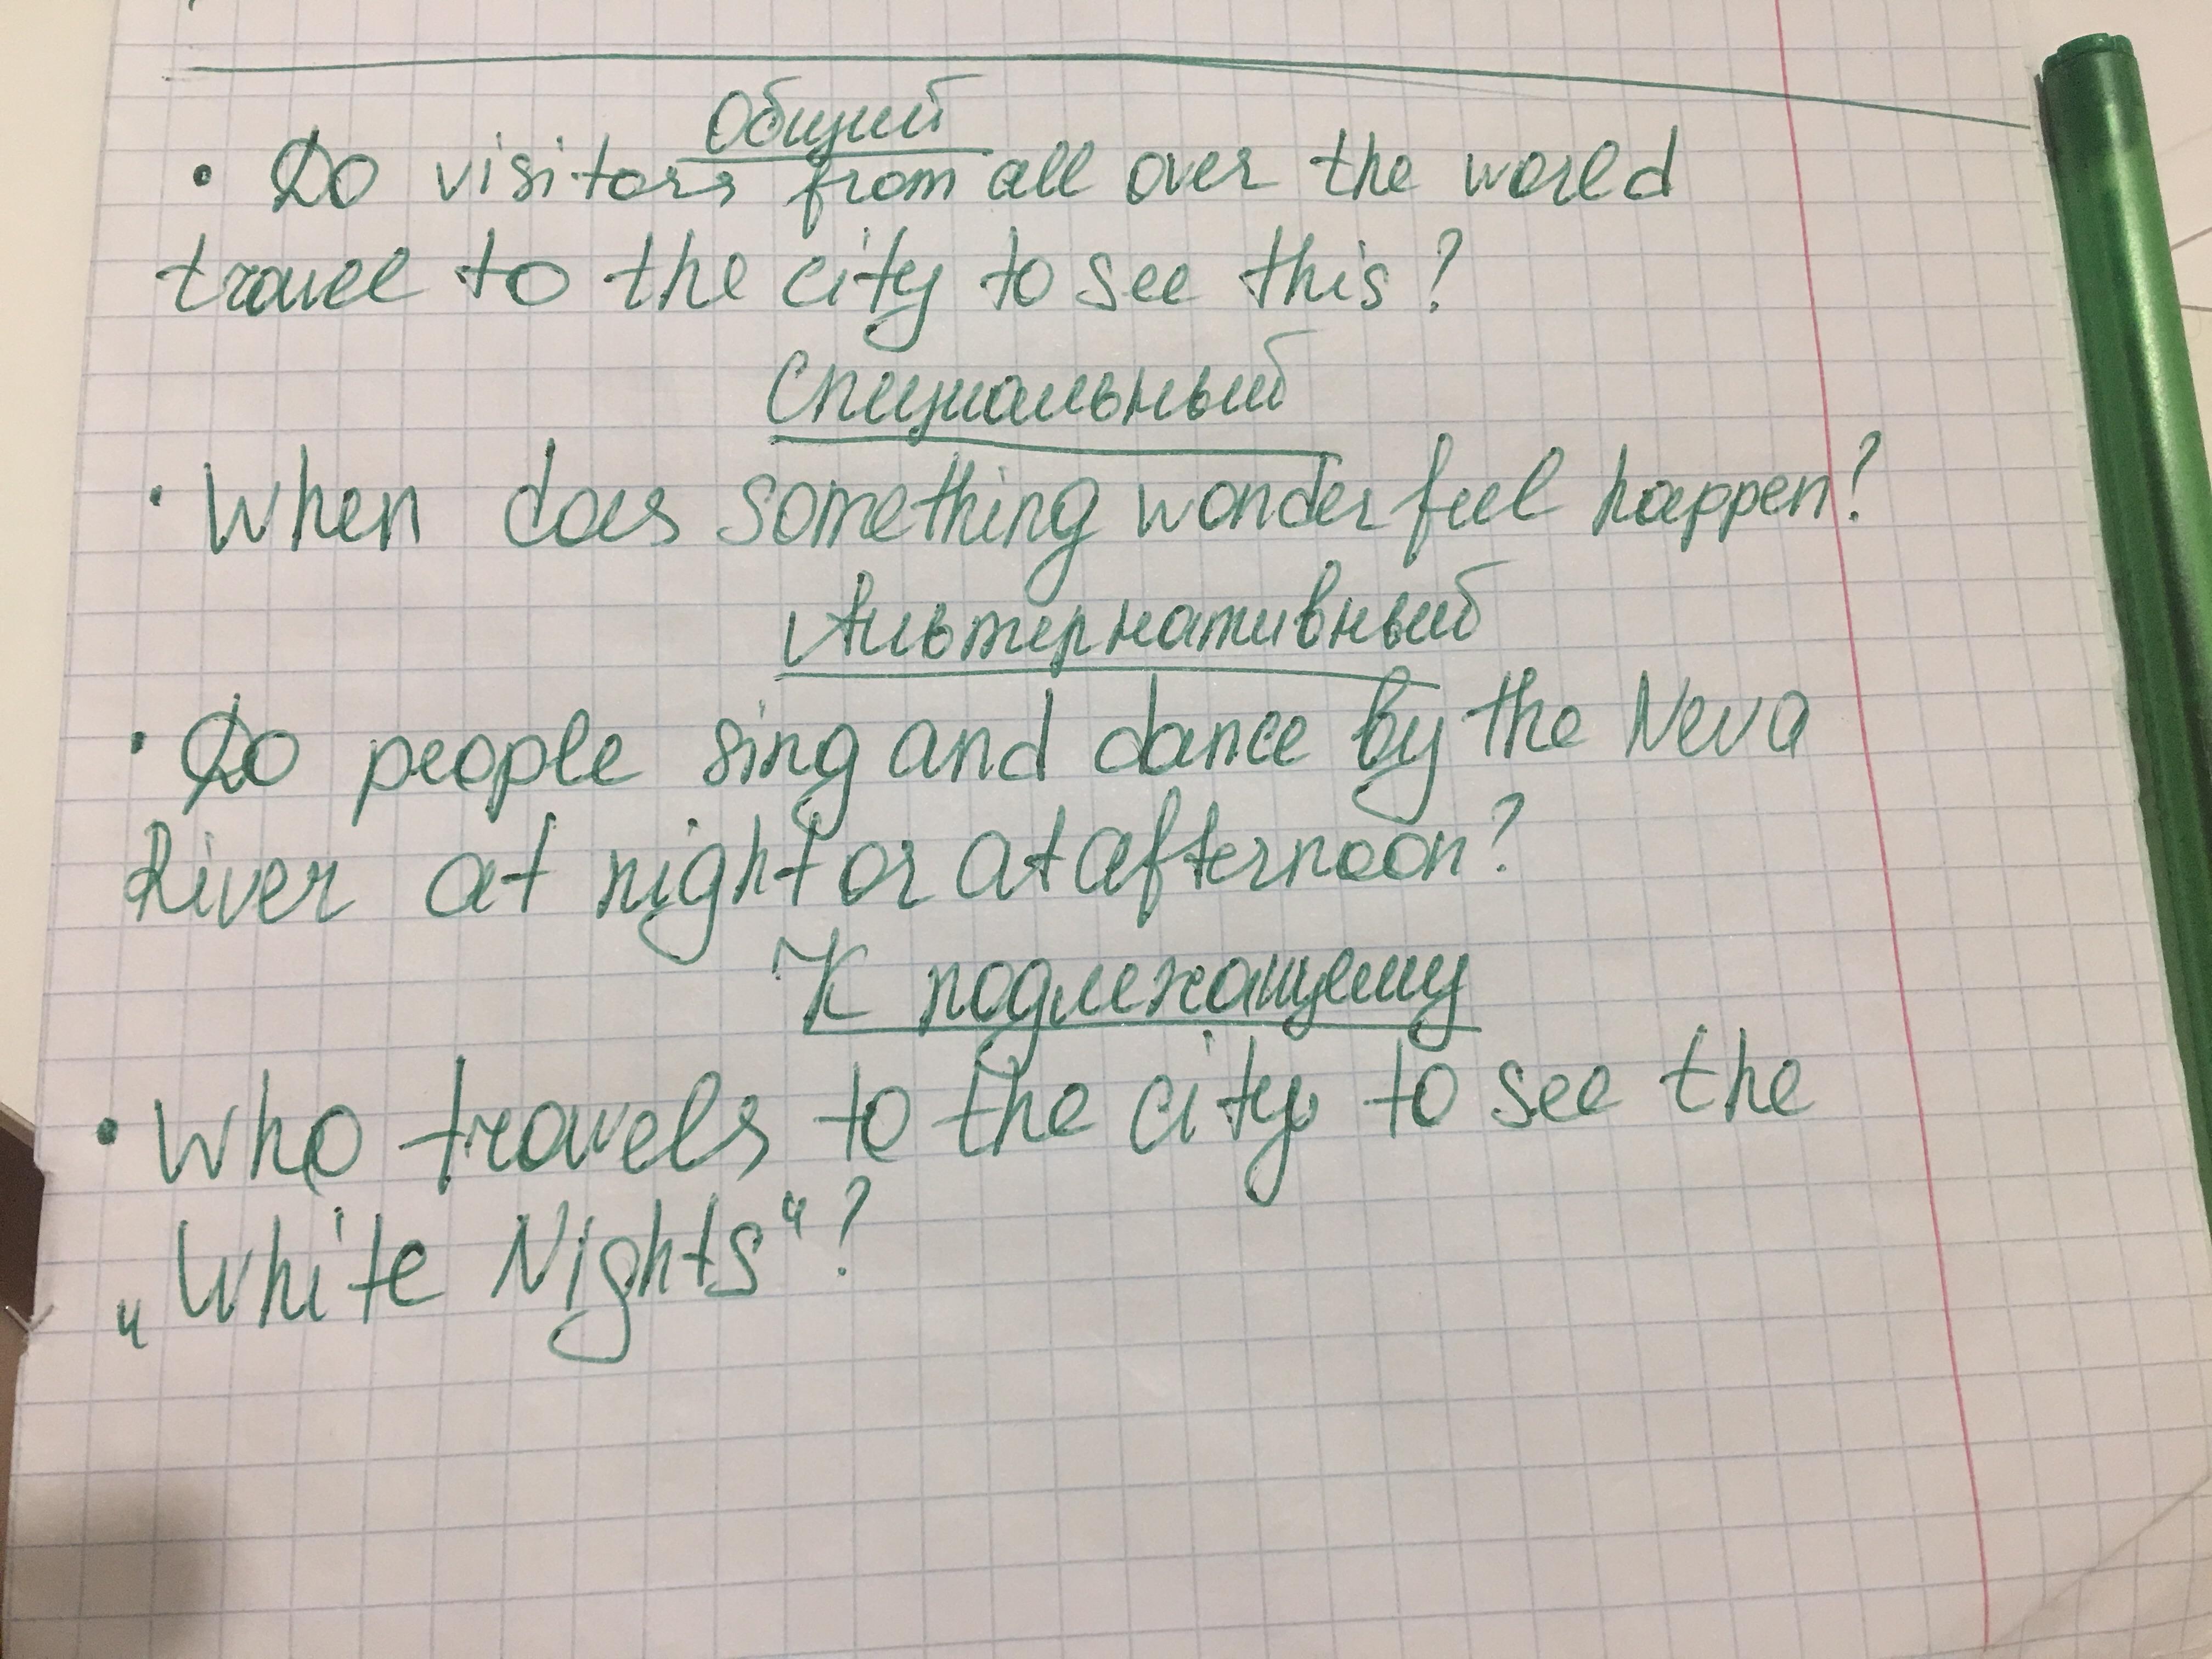 Общий
• Do visitors from all over the world
travel to the city to see this?
Специальный
• When does something wonderful happen?
Альтернативный
• Do people sing and dance by the Neva
River at night or at afternoon?
К подлежащему
• Who travels to the city to see the
„White Nights“?